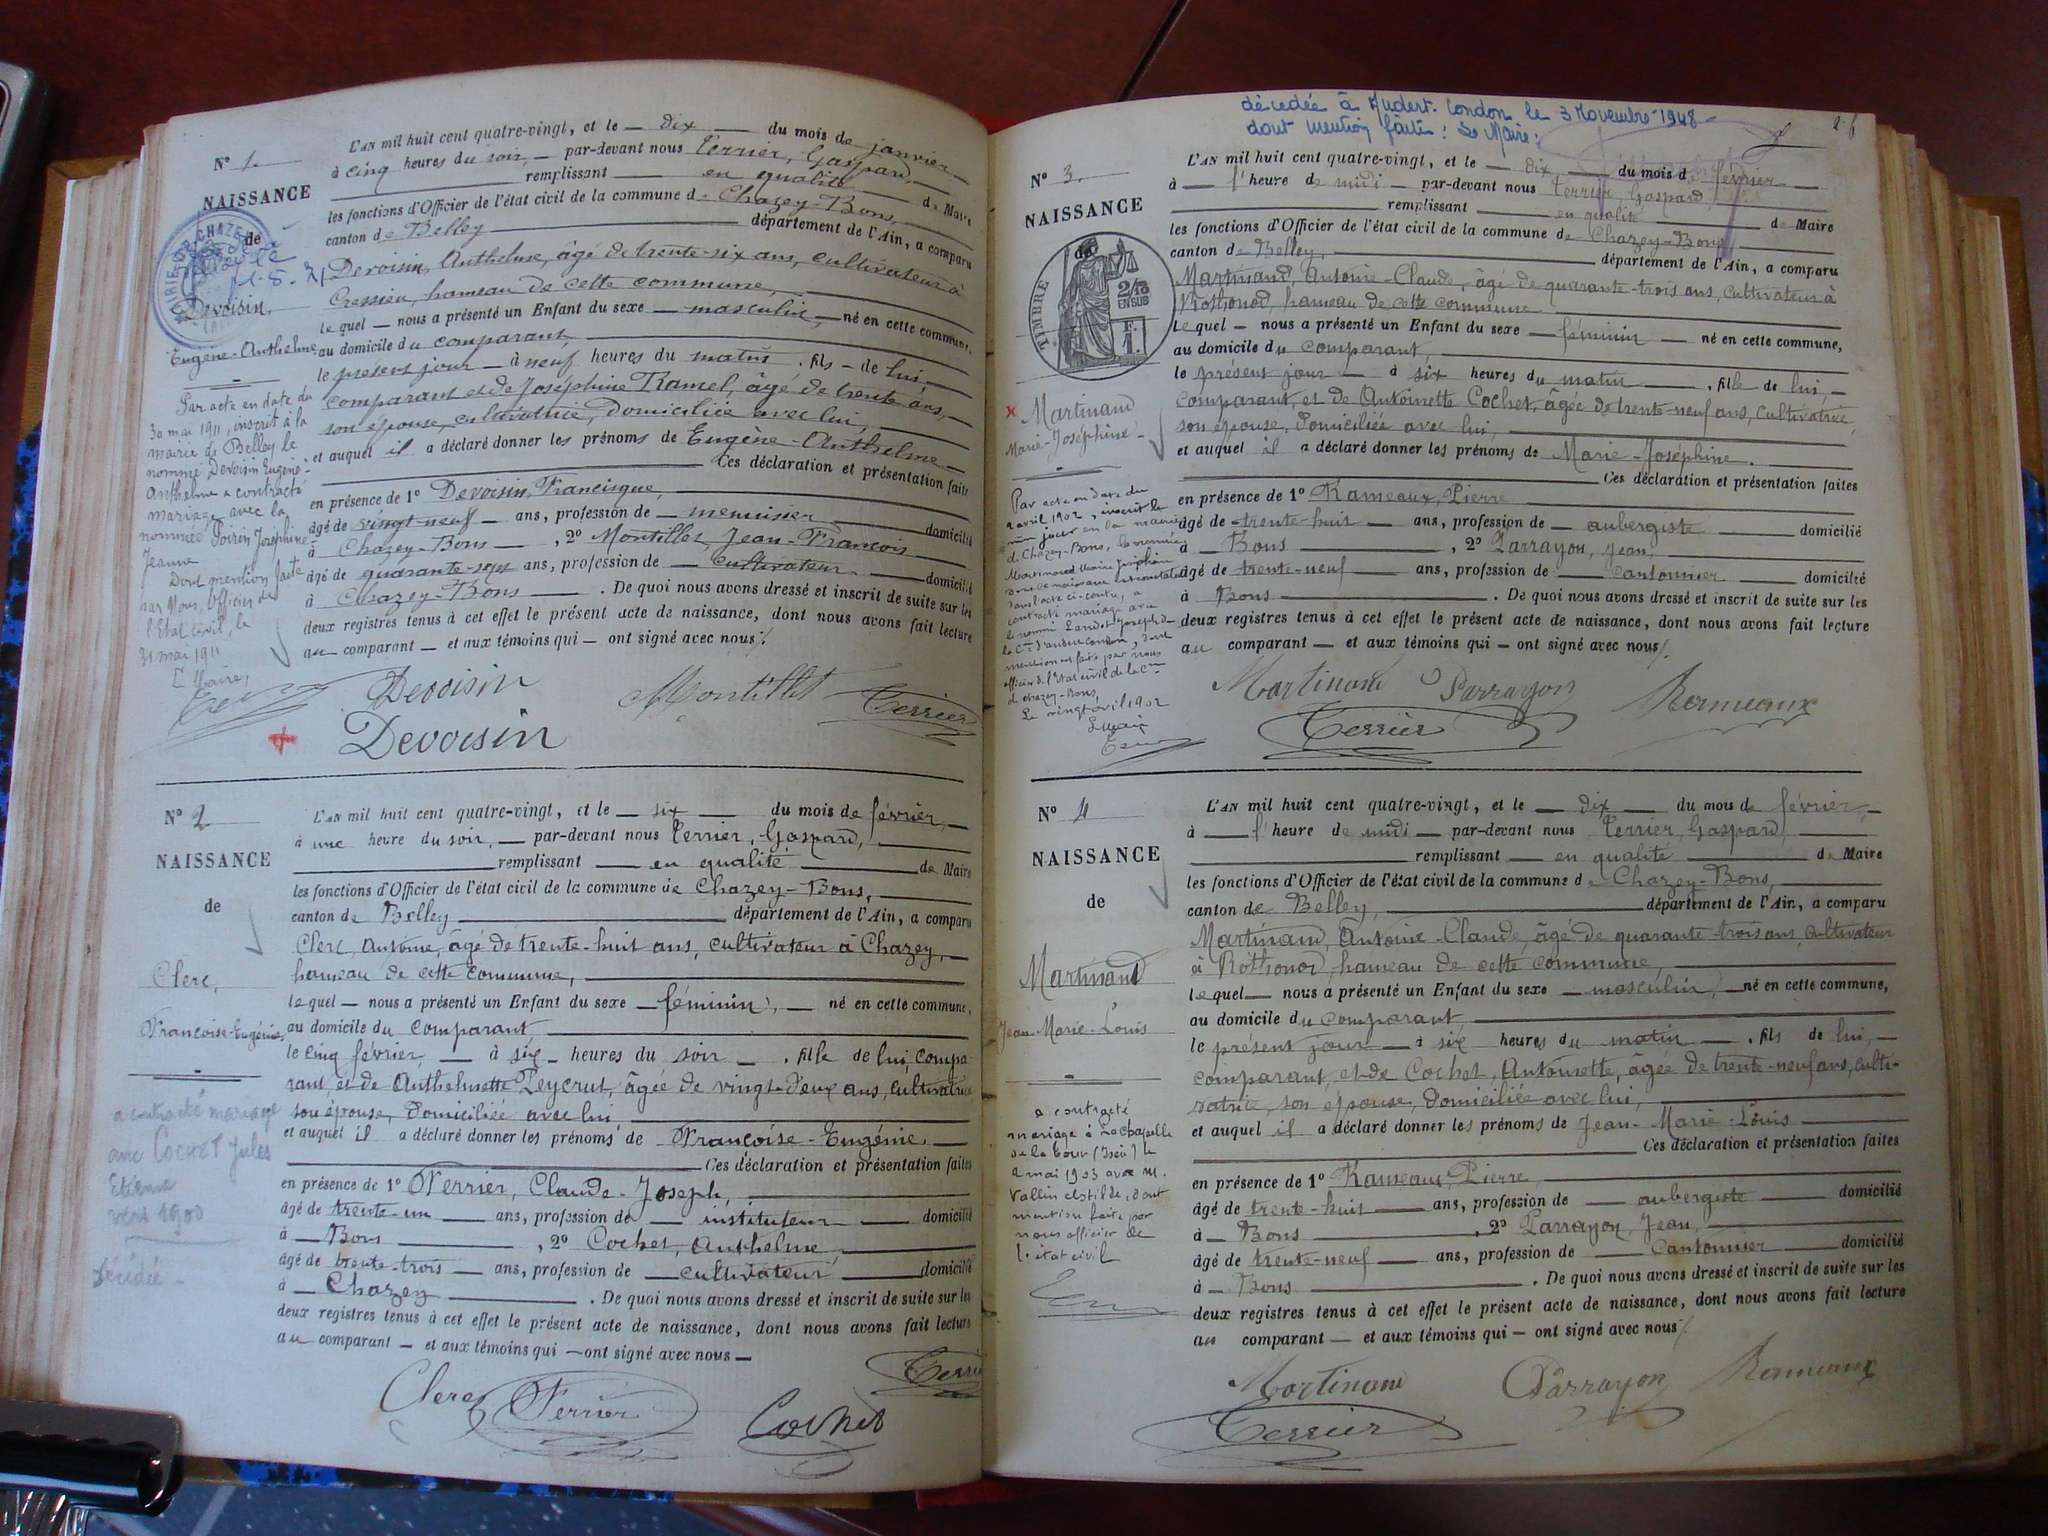 N° 1.
NAISSANCE
de
Devoisin,
Eugène-Anthelme
Par acte en date du
30 mai 1911, inscrit à la
mairie de Belley le
nommé Devoisin Eugène-
Anthelme a contracté
mariage avec la
nommée Poirin Joséphine-
Jeanne
Dont mention faite
par Nous, Officier de
l'Etat civil, le
31 mai 1911
Le Maire,
L'AN mil huit cent quatre-vingt, et le dix du mois de janvier
à cinq heures du soir, par-devant nous Terrier, Gaspard,
remplissant en qualité de Maire
les fonctions d'Officier de l'état civil de la commune de Chazey-Bons,
canton de Belley département de l'Ain, a comparu
Devoisin, Anthelme, âgé de trente-six ans, cultivateur à
Cressieu, hameau de cette commune,
lequel nous a présenté un Enfant du sexe masculin, né en cette commune,
au domicile du comparant,
le présent jour à neuf heures du matin, fils de lui,
comparant et de Joséphine Tramel, âgé de trente ans,
son épouse, cultivatrice, domiciliée avec lui,
et auquel il a déclaré donner les prénoms de Eugène-Anthelme
Ces déclaration et présentation faites
en présence de 1° Devoisin, Francisque,
âgé de vingt-neuf ans, profession de menuisier domicilié
à Chazey-Bons, 2° Montillet, Jean-François
âgé de quarante-sept ans, profession de cultivateur domicilié
à Chazey-Bons. De quoi nous avons dressé et inscrit de suite sur les
deux registres tenus à cet effet le présent acte de naissance, dont nous avons fait lecture
au comparant et aux témoins qui ont signé avec nous
Devoisin Montillet Terrier
Devoisin
N° 2
NAISSANCE
de
Clerc,
Françoise-Eugénie
a contracté mariage
avec COCHET Jules
Etienne
vers 1900
Décédée
L'AN mil huit cent quatre-vingt, et le six du mois de février,
à une heure du soir, par-devant nous Terrier, Gaspard,
remplissant en qualité de Maire
les fonctions d'Officier de l'état civil de la commune de Chazey-Bons,
canton de Belley département de l'Ain, a comparu
Clerc, Antoine, âgé de trente-huit ans, cultivateur à Chazey,
hameau de cette commune,
lequel nous a présenté un Enfant du sexe féminin, né en cette commune,
au domicile du comparant
le cinq février à six heures du soir, fille de lui, compa-
rant, et de Anthelmette Peycrut, âgée de vingt-deux ans, cultivatrice
son épouse, domiciliée avec lui
et auquel il a déclaré donner les prénoms de Françoise-Eugénie.
Ces déclaration et présentation faites
en présence de 1° Ferrier, Claude-Joseph,
âgé de trente-un ans, profession de instituteur domicilié
à Bons, 2° Cochet, Anthelme,
âgé de trente-trois ans, profession de cultivateur domicilié
à Chazey. De quoi nous avons dressé et inscrit de suite sur les
deux registres tenus à cet effet le présent acte de naissance, dont nous avons fait lecture
au comparant et aux témoins qui ont signé avec nous
Clerc Ferrier Cochet Terrier
décédée à Audert-Condon le 3 Novembre 1948
dont mention faite: Le Maire:
N° 3.
NAISSANCE
de
TIMBRE
2/10
EN SUS
F.
1.
Martinand
Marie-Joséphine
Par acte en date du
avril 1902, inscrit le
même jour en la mairie
de Chazey-Bons, la nommée
Martinand Marie Joséphine
dans l'acte ci-contre, a
contracté mariage avec
le nommé Landot Joseph
mention est faite par nous
officier de l'état civil de la Cne
de Chazey-Bons,
Le vingt avril 1902
Le maire
L'AN mil huit cent quatre-vingt, et le dix du mois de février
à l'heure de midi par-devant nous Terrier, Gaspard,
remplissant en qualité de Maire
les fonctions d'Officier de l'état civil de la commune de Chazey-Bons
canton de Belley, département de l'Ain, a comparu
Martinand, Antoine-Claude, âgé de quarante-trois ans, cultivateur à
Rothonod, hameau de cette commune
lequel nous a présenté un Enfant du sexe féminin né en cette commune,
au domicile du comparant,
le présent jour à six heures du matin, fille de lui,
comparant, et de Antoinette Cochet, âgée de trente-neuf ans, cultivatrice,
son épouse, domiciliée avec lui,
et auquel il a déclaré donner les prénoms de Marie-Joséphine.
Ces déclaration et présentation faites
en présence de 1° Rameaux, Pierre
âgé de trente-huit ans, profession de aubergiste domicilié
à Bons, 2° Parrayon, Jean,
âgé de trente-neuf ans, profession de cantonnier domicilié
à Bons. De quoi nous avons dressé et inscrit de suite sur les
deux registres tenus à cet effet le présent acte de naissance, dont nous avons fait lecture
au comparant et aux témoins qui ont signé avec nous
Martinand Parrayon Rameaux
Terrier
N° 4
NAISSANCE
de
Martinand
Jean-Marie-Louis
a contracté
mariage à La Chapelle
de la Tour (Isère) le
2 mai 1903 avec M.
Vallin Clotilde, dont
mention faite par
nous officier de
l'état civil
L'AN mil huit cent quatre-vingt, et le dix du mois de février,
à l'heure de midi par-devant nous Terrier, Gaspard,
remplissant en qualité de Maire
les fonctions d'Officier de l'état civil de la commune de Chazey-Bons,
canton de Belley, département de l'Ain, a comparu
Martinand, Antoine-Claude, âgé de quarante-trois ans, cultivateur
à Rothonod, hameau de cette commune,
lequel nous a présenté un Enfant du sexe masculin, né en cette commune,
au domicile du comparant,
le présent jour à six heures du matin, fils de lui,
comparant, et de Cochet, Antoinette, âgée de trente-neuf ans, culti-
vatrice, son épouse, domiciliée avec lui,
et auquel il a déclaré donner les prénoms de Jean-Marie-Louis
Ces déclaration et présentation faites
en présence de 1° Rameaux, Pierre,
âgé de trente-huit ans, profession de aubergiste domicilié
à Bons, 2° Parrayon, Jean,
âgé de trente-neuf ans, profession de cantonnier domicilié
à Bons. De quoi nous avons dressé et inscrit de suite sur les
deux registres tenus à cet effet le présent acte de naissance, dont nous avons fait lecture
au comparant et aux témoins qui ont signé avec nous
Martinand Parrayon Rameaux
Terrier